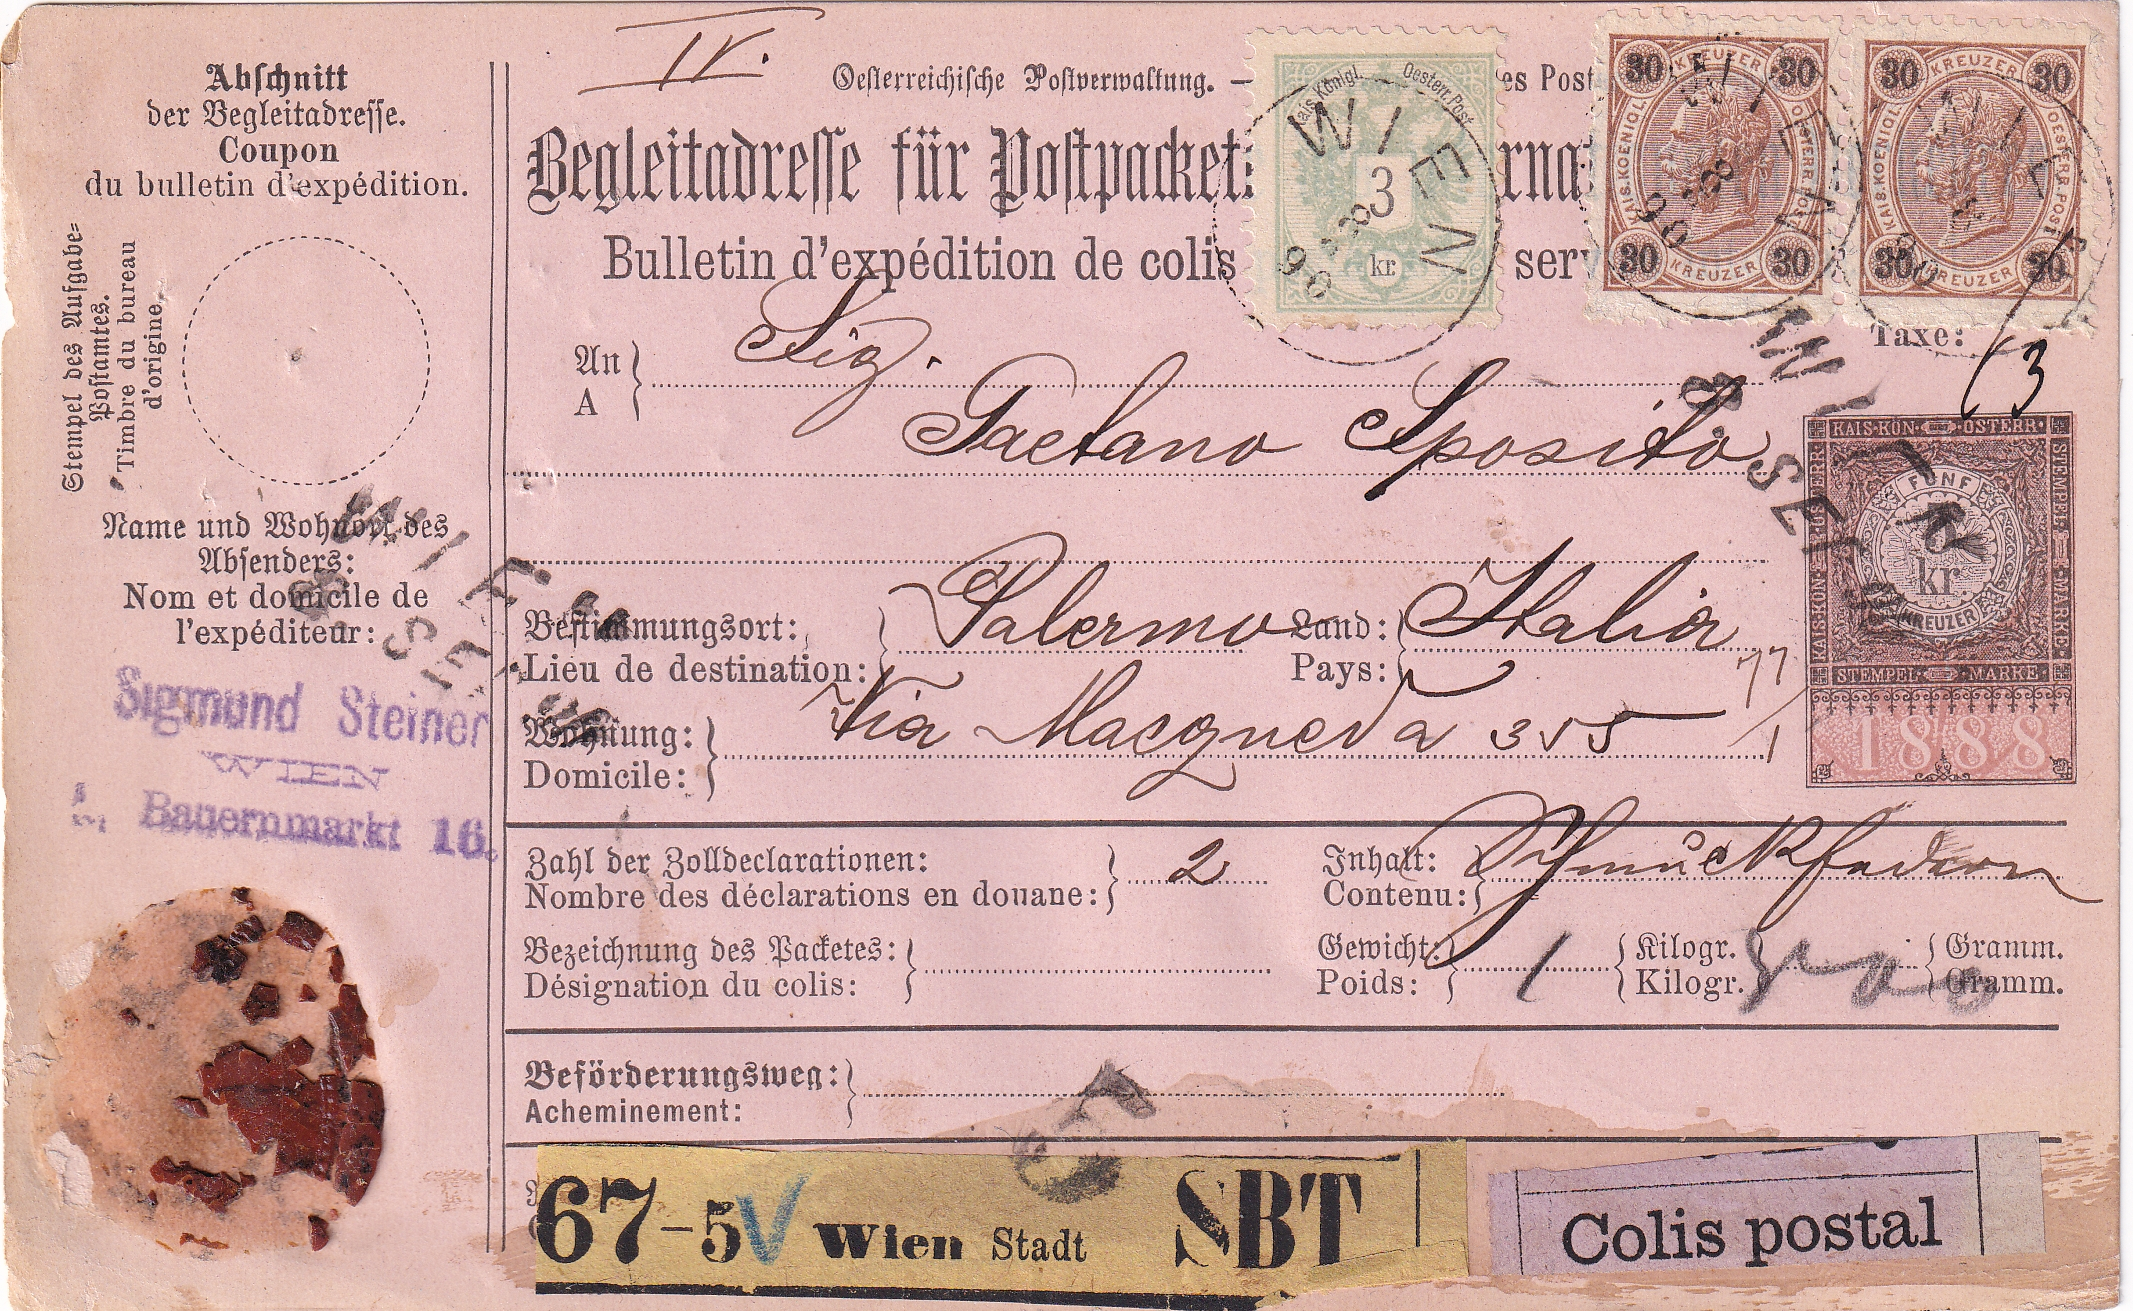 Abschnitt
der Begleitadresse.
Coupon
du bulletin d'expédition.
Stempel des Aufgabe-
Postamtes.
Timbre du bureau
d'origine.
Name und Wohnort des
Absenders:
Nom et domicile de
l'expéditeur:
Sigmund Steiner
WIEN
Bauernmarkt 16.
IV.
Oesterreichische Postverwaltung. —
Begleitadresse für Postpackete
Bulletin d'expédition de colis
Kais. Königl. Oesterr. Post
3
kr.
WIEN
30 KREUZER 30
KAIS. KOENIGL. OESTERR. POST
30 KREUZER 30
WIEN
30 KREUZER 30
KAIS. KOENIGL. OESTERR. POST
30 KREUZER 30
WIEN
Taxe:
3
An
A
Sig.
Gaetano Sposito
Bestimmungsort:
Lieu de destination:
Palermo
Land:
Pays:
Italia
Wohnung:
Domicile:
Via Macqueda 355
77
1
KAIS·KÖN· ÖSTERR·
STEMPEL MARKE
FÜNF
kr.
KREUZER
STEMPEL MARKE
1888
WIEN
8. SE
WIEN
8. SE
Zahl der Zolldeclarationen:
Nombre des déclarations en douane:
2
Inhalt:
Contenu:
Schmuckfedern
Bezeichnung des Packetes:
Désignation du colis:
Gewicht:
Poids:
1
Kilogr.
Kilogr.
Gramm.
Gramm.
Beförderungsweg:
Acheminement:
67-5 Wien Stadt SBT
Colis postal